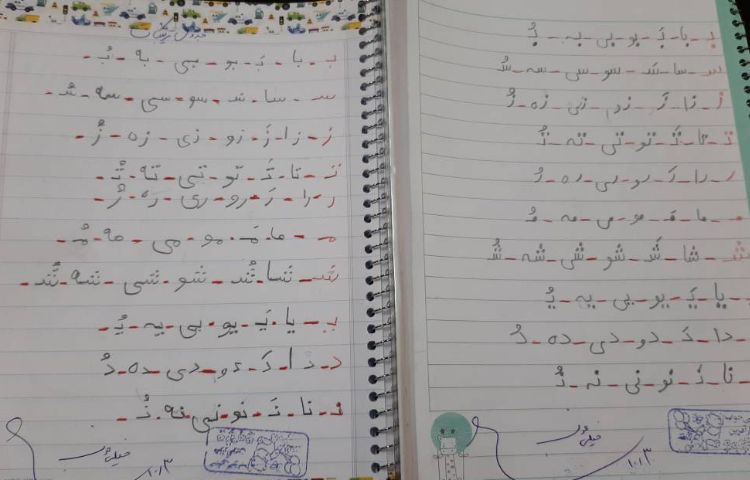 بـ - با - بَـ - بو - بی - به - بُـ
سـ - سا - سَـ - سو - سی - سه - سُـ
ز - زا - زَ - زو - زی - زه - زُ
تـ - تا - تَـ - تو - تی - ته - تُـ
ر - را - رَ - رو - ری - ره - رُ
مـ - ما - مَـ - مو - می - مه - مُـ
شـ - شا - شَـ - شو - شی - شه - شُـ
یـ - یا - یَـ - یو - یی - یه - یُـ
د - دا - دَ - دو - دی - ده - دُ
نا - نَـ - نو - نی - نه - نُـ
۱۰،۱۳
بـ - با - بَـ - بو - بی - به - بُـ
سـ - سا - سَـ - سو - سی - سه - سُـ
ز - زا - زَ - زو - زی - زه - زُ
تـ - تا - تَـ - تو - تی - ته - تُـ
ر - را - رَ - رو - ری - ره - رُ
مـ - ما - مَـ - مو - می - مه - مُـ
شـ - شا - شَـ - شو - شی - شه - شُـ
یـ - یا - یَـ - یو - یی - یه - یُـ
د - دا - دَ - دو - دی - ده - دُ
نـ - نا - نَـ - نو - نی - نه - نُـ
۱۰،۱۳